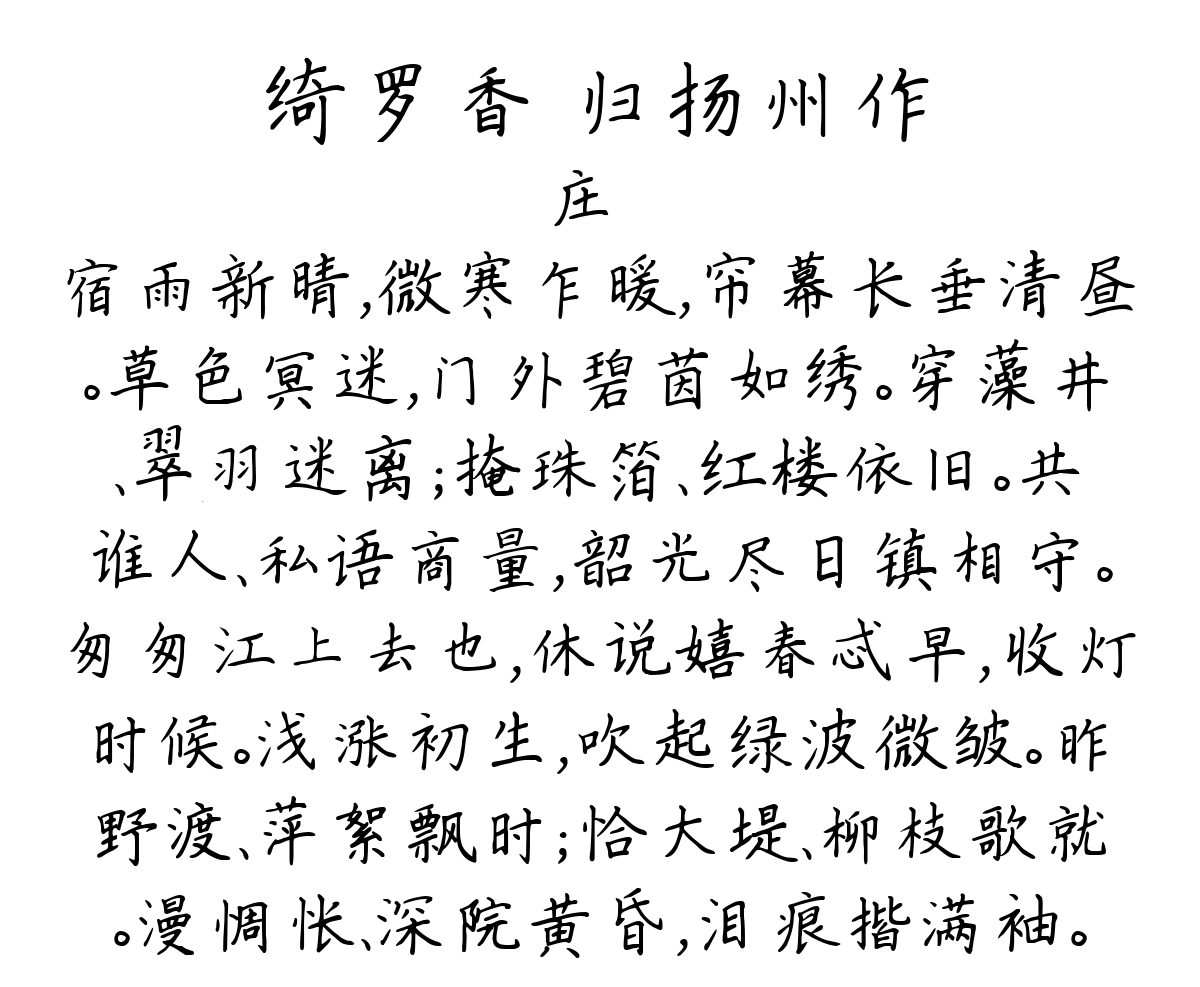 绮罗香 归扬州作
庄
宿雨新晴,微寒乍暖,帘幕长垂清昼
。草色冥迷,门外碧茵如绣。穿藻井
、翠羽迷离;掩珠箔、红楼依旧。共
谁人、私语商量,韶光尽日镇相守。
匆匆江上去也,休说嬉春忒早,收灯
时候。浅涨初生,吹起绿波微皱。昨
野渡、萍絮飘时;恰大堤、柳枝歌就
。漫惆怅、深院黄昏,泪痕揩满袖。